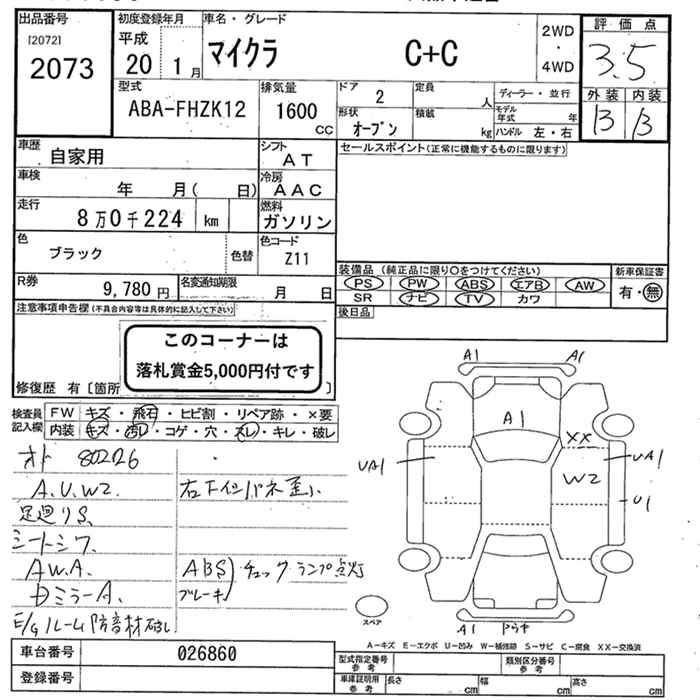 出品番号
[2072]
2073
初度登録年月
平成
20 1月
車名・グレード
マイクラ C+C
2WD
・
4WD
評価点
3.5
外装 内装
B B
型式
ABA-FHZK12
排気量
1600
CC
ドア
2
定員
人
形状
オープン
積載
kg
ディーラー・並行
モデル年式 年
ハンドル 左・右
車歴
自家用
シフト
AT
セールスポイント(正常に機能するものに限ります)
車検
年 月( 日)
冷房
AAC
走行
8万0千224 km
燃料
ガソリン
色
ブラック
色替
色コード
Z11
R券
9,780円
名変通知期限
月 日
装備品 (純正品に限り○をつけてください)
PS PW ABS エアB AW
SR ナビ TV カワ
新車保証書
有・無
後日品
注意事項申告欄(不具合内容等は具体的に記入して下さい)
このコーナーは
落札賞金5,000円付です
修復歴 有〔箇所 〕
検査員
記入欄
FW キズ・飛石・ヒビ割・リペア跡・×要
内装 キズ・汚レ・コゲ・穴・スレ・キレ・破レ
オド 80226
A.U.W2.
足廻りS.
シートシワ
AW.A.
DミラーA.
E/Gルーム防音材破レ
右下インパネ歪ミ
ABS
ブレーキ
チェックランプ点灯
A1 A1
A1
XX
UA1 UA1
W2
U1
A1
スペア
A-キズ E-エクボ U-凹み W-補修跡 S-サビ C-腐食 XX-交換済
車台番号 026860
登録番号
型式指定番号
参考
類別区分番号
参考
車庫証明用
参考
長さ cm 幅 cm 高さ cm